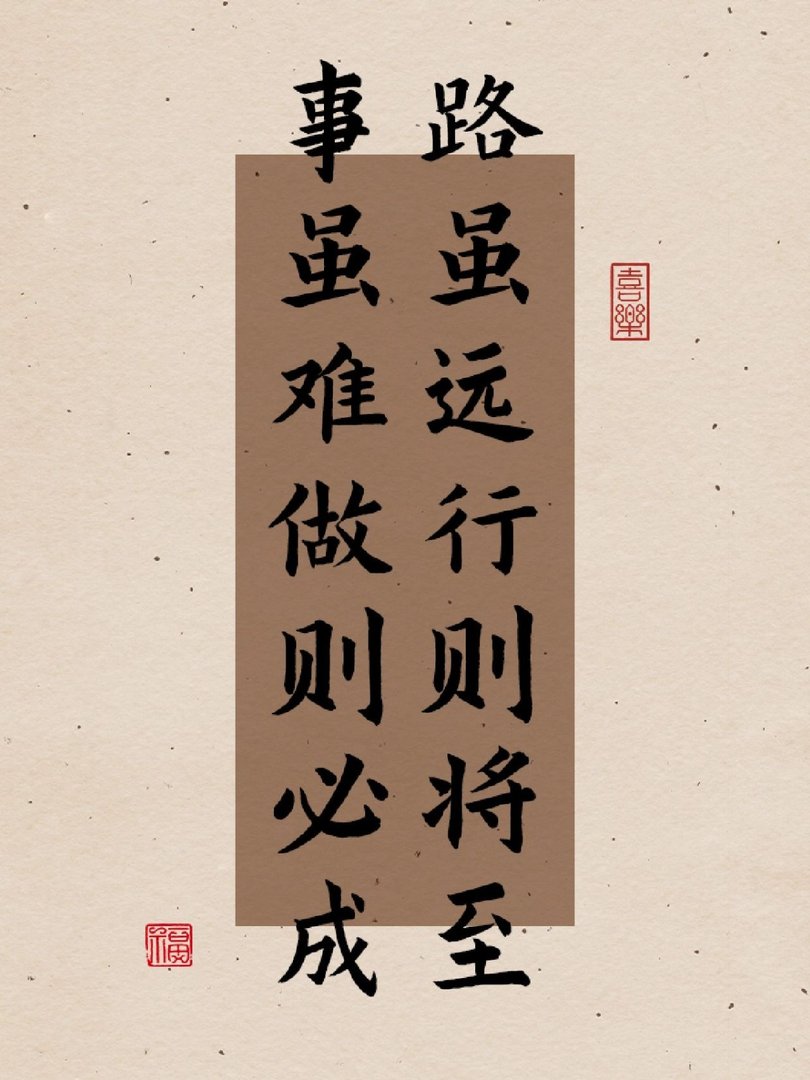 路虽远行则将至
事虽难做则必成
喜樂
福